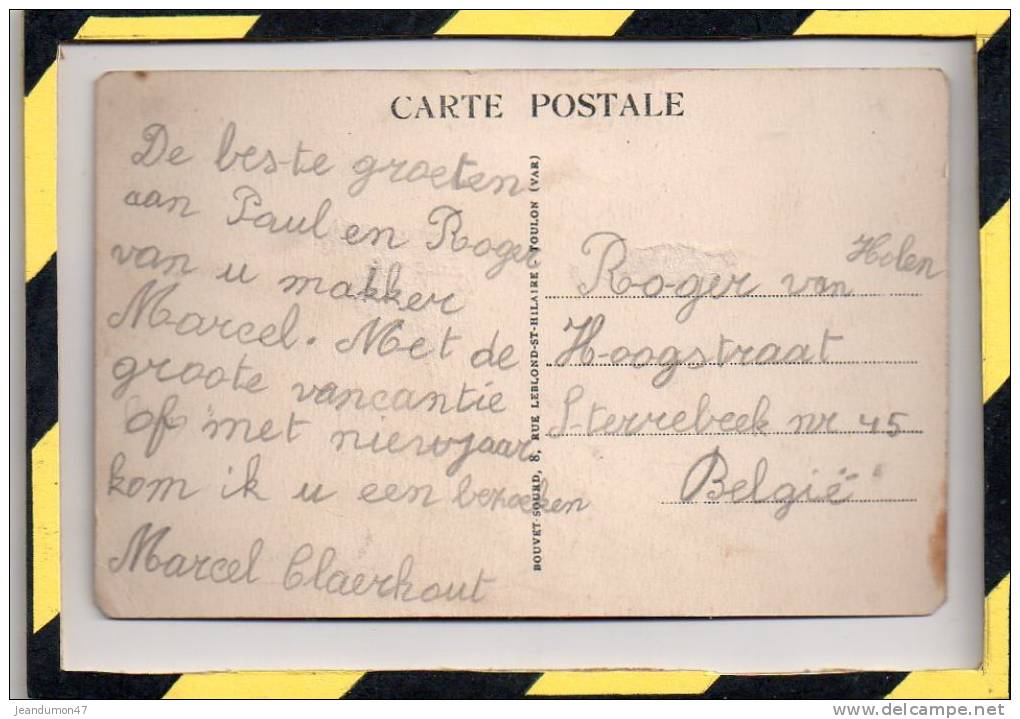 CARTE POSTALE
De beste groeten
aan Paul en Roger
van u makker
Marcel. Met de
groote vancantie
of met niewjaar
kom ik u een bezoeken
Marcel Claerhout
BOUVET-SOURD, 8, RUE LEBLOND-ST-HILAIRE - TOULON (VAR)
Roger van Holen
Hoogstraat
Sterrebeek nr 45
België
jeandumon47
www.delcampe.net